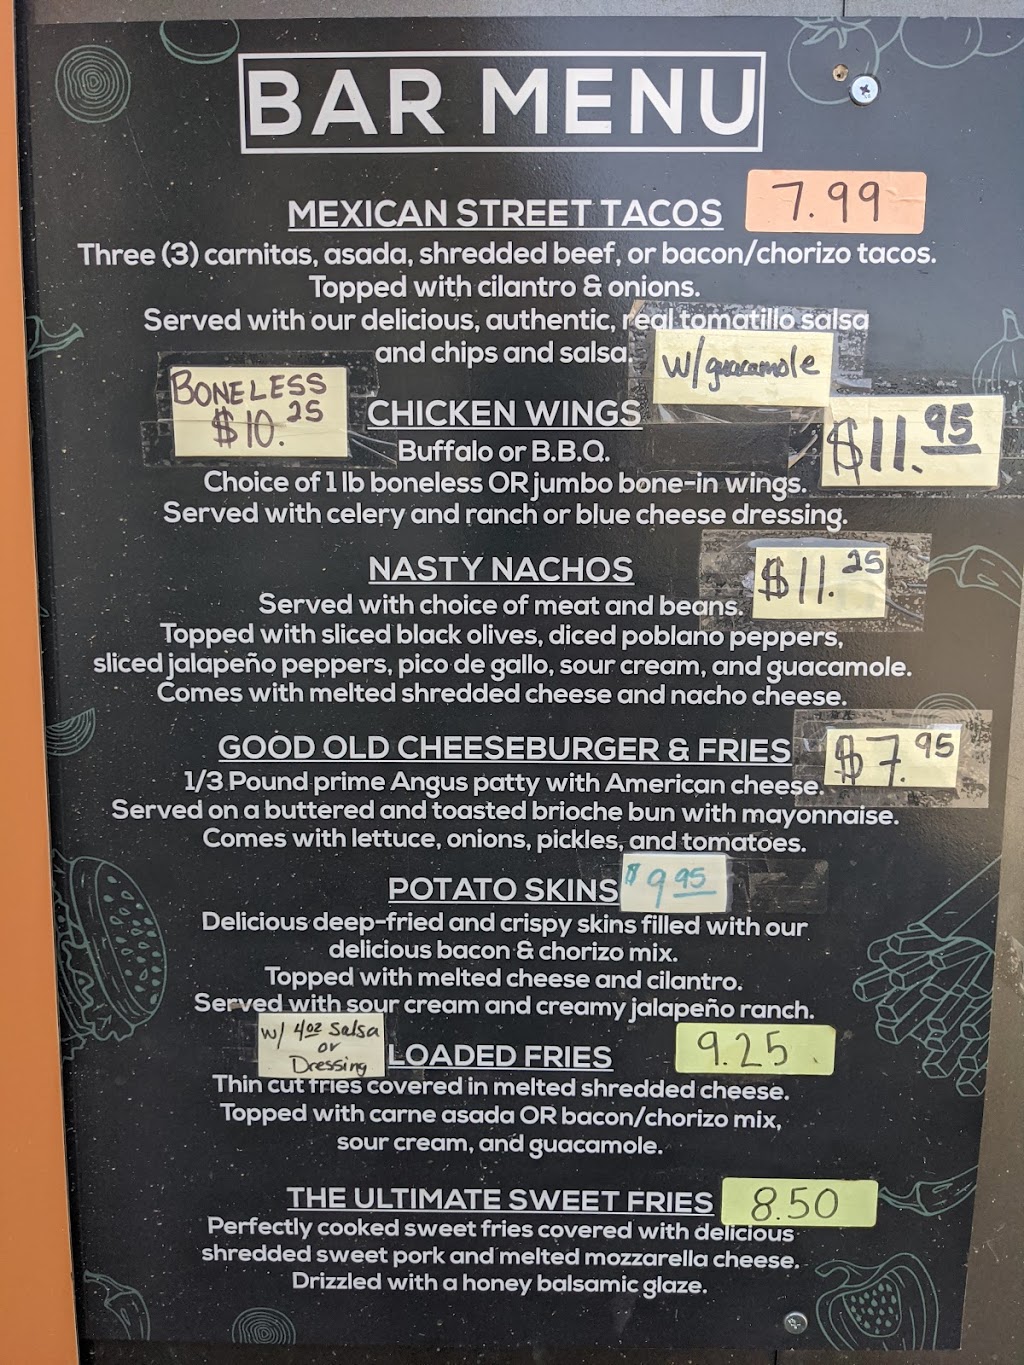 BAR MENU
MEXICAN STREET TACOS 7.99
Three (3) carnitas, asada, shredded beef, or bacon/chorizo tacos.
Topped with cilantro & onions.
Served with our delicious, authentic, real tomatillo salsa
and chips and salsa. w/guacamole
BONELESS
$10.25
CHICKEN WINGS $11.95
Buffalo or B.B.Q.
Choice of 1 lb boneless OR jumbo bone-in wings.
Served with celery and ranch or blue cheese dressing.
NASTY NACHOS $11.25
Served with choice of meat and beans.
Topped with sliced black olives, diced poblano peppers,
sliced jalapeño peppers, pico de gallo, sour cream, and guacamole.
Comes with melted shredded cheese and nacho cheese.
GOOD OLD CHEESEBURGER & FRIES $7.95
1/3 Pound prime Angus patty with American cheese.
Served on a buttered and toasted brioche bun with mayonnaise.
Comes with lettuce, onions, pickles, and tomatoes.
POTATO SKINS $9.95
Delicious deep-fried and crispy skins filled with our
delicious bacon & chorizo mix.
Topped with melted cheese and cilantro.
Served with sour cream and creamy jalapeño ranch.
w/ 4oz Salsa
or
Dressing
LOADED FRIES 9.25
Thin cut fries covered in melted shredded cheese.
Topped with carne asada OR bacon/chorizo mix,
sour cream, and guacamole.
THE ULTIMATE SWEET FRIES 8.50
Perfectly cooked sweet fries covered with delicious
shredded sweet pork and melted mozzarella cheese.
Drizzled with a honey balsamic glaze.